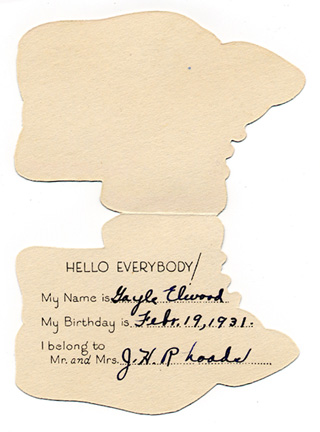 HELLO EVERYBODY!
My Name is Gayle Elwood
My Birthday is Febr. 19, 1931.
I belong to
Mr. and Mrs. J. H. Rhoads